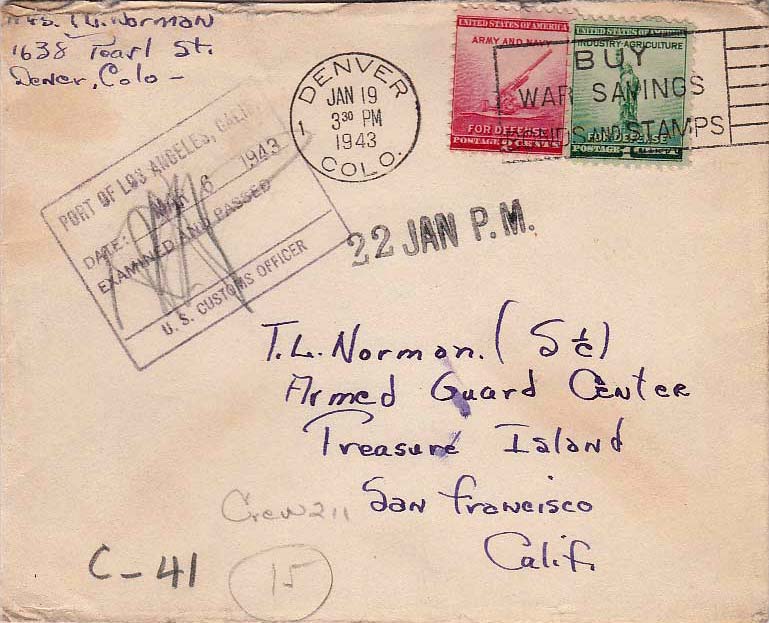 Mrs. T.L. Norman
1638 Pearl St.
Dener, Colo -
DENVER
COLO.
1
JAN 19
3 30 PM
1943
UNITED STATES OF AMERICA
ARMY AND NAVY
FOR DEFENSE
POSTAGE 2 CENTS
UNITED STATES OF AMERICA
INDUSTRY AGRICULTURE
FOR DEFENSE
POSTAGE 1
BUY
WAR SAVINGS
BONDS AND STAMPS
PORT OF LOS ANGELES, CALIF.
DATE: MAR 6 1943
EXAMINED AND PASSED
U. S. CUSTOMS OFFICER
22 JAN P.M.
T.L. Norman. (S 1/c)
Armed Guard Center
Treasure Island
San Francisco
Calif.
Crew 211
C-41
15